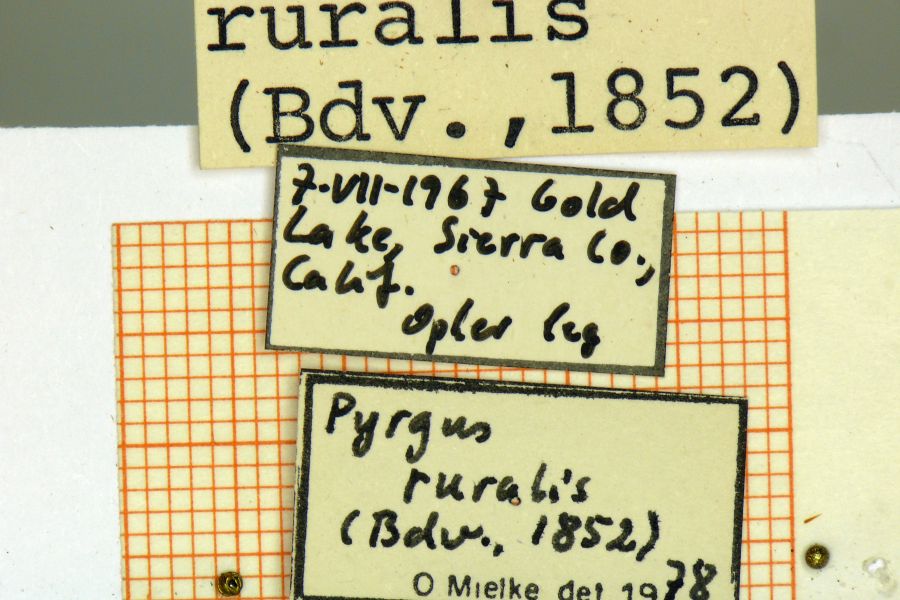 ruralis
(Bdv.,1852)
7-VII-1967 Gold
Lake, Sierra Co.,
Calif.
Opler leg
Pyrgus
ruralis
(Bdv., 1852)
O Mielke det 1978